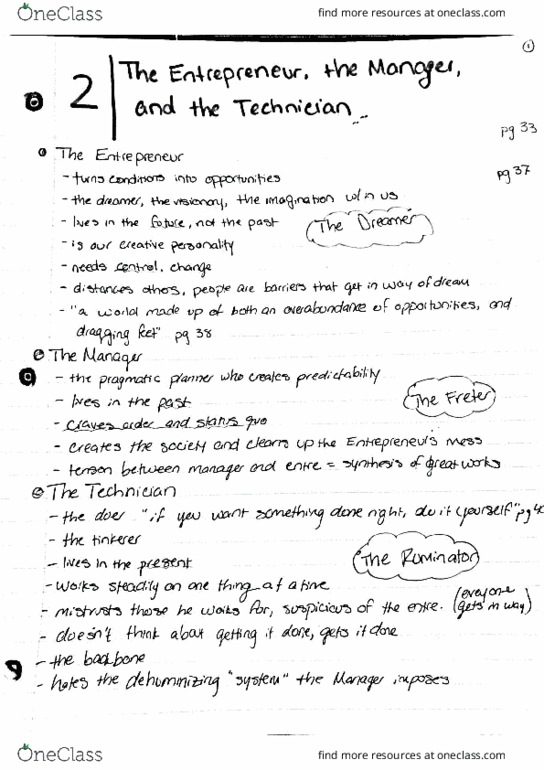 OneClass find more resources at oneclass.com
①
2 The Entrepreneur, the Manager,
and the Technician
pg 33
The Entrepreneur
pg 37
- turns conditions into opportunities
- the dreamer, the visionary, the imagination w/in us
- lives in the future, not the past
The Dreamer
- is our creative personality
- needs control, change
- distances others, people are barriers that get in way of dream
- "a world made up of both an overabundance of opportunities, and
dragging feet" pg 38
The Manager
- the pragmatic planner who creates predictability
- lives in the past
The Freter
- craves order and status quo
- creates the society and cleans up the Entrepreneur's mess
- tension between manager and entre = synthesis of great works
The Technician
- the doer "if you want something done right, do it (yourself" pg 40
- the tinkerer
- lives in the present
The Ruminator
- works steadily on one thing at a time
- mistrusts those he works for, suspicious of the entre. (everyone
gets in way)
- doesn't think about getting it done, gets it done
- the backbone
- hates the dehumnizing "system" the Manager imposes
OneClass find more resources at oneclass.com